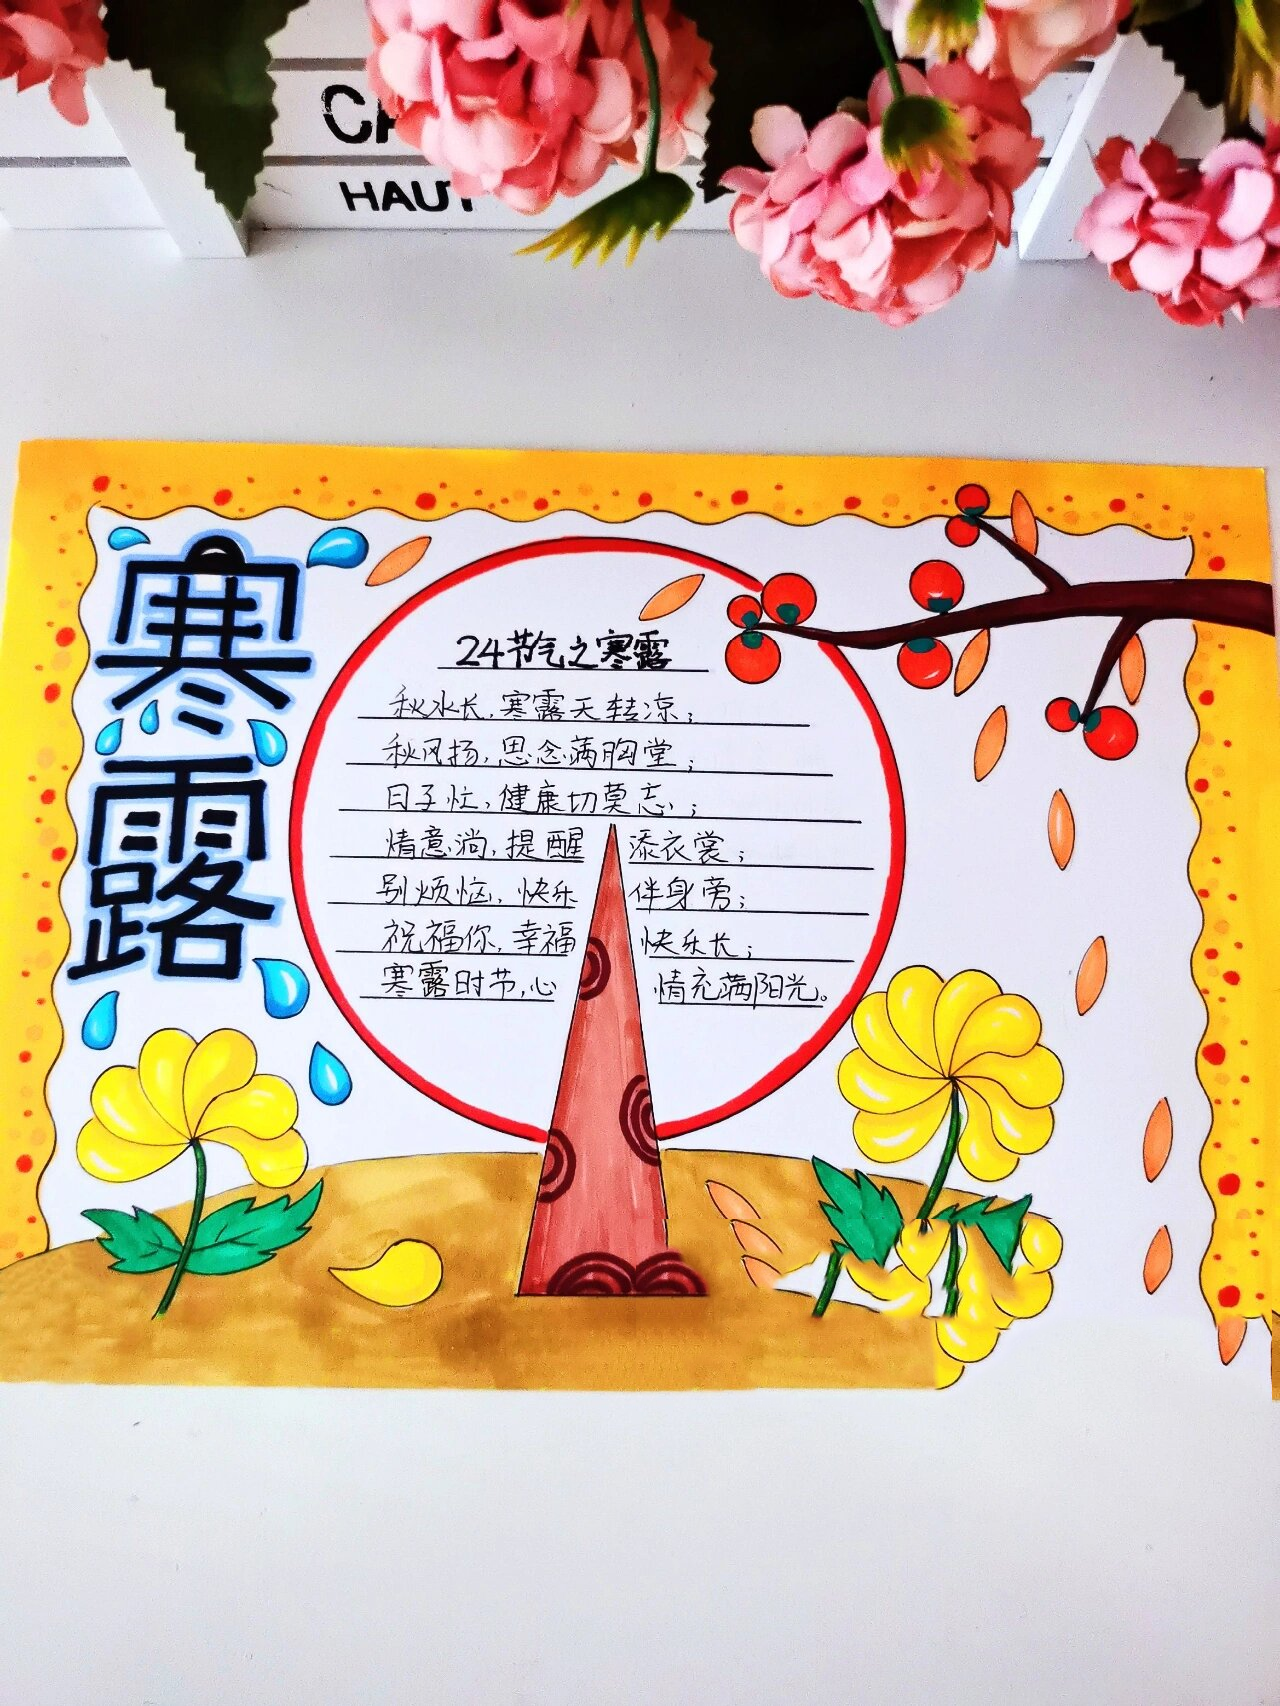 HAUT
寒露
24节气之寒露
秋水长,寒露天转凉;
秋风扬,思念满胸堂;
日子忙,健康切莫忘;
情意淌,提醒添衣裳;
别烦恼,快乐伴身旁;
祝福你,幸福快乐长;
寒露时节,心情充满阳光。